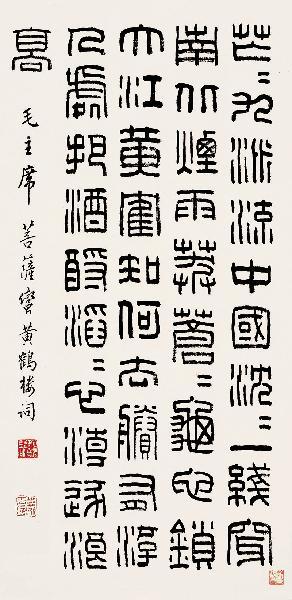 芒〻九派流中國沈〻一綫穿
南北煙雨莽蒼〻龜它鎖
大江黃鶴知何去賸有游
人處把酒酹滔〻心淖逐浪
高
毛主席菩薩蠻黃鶴樓詞